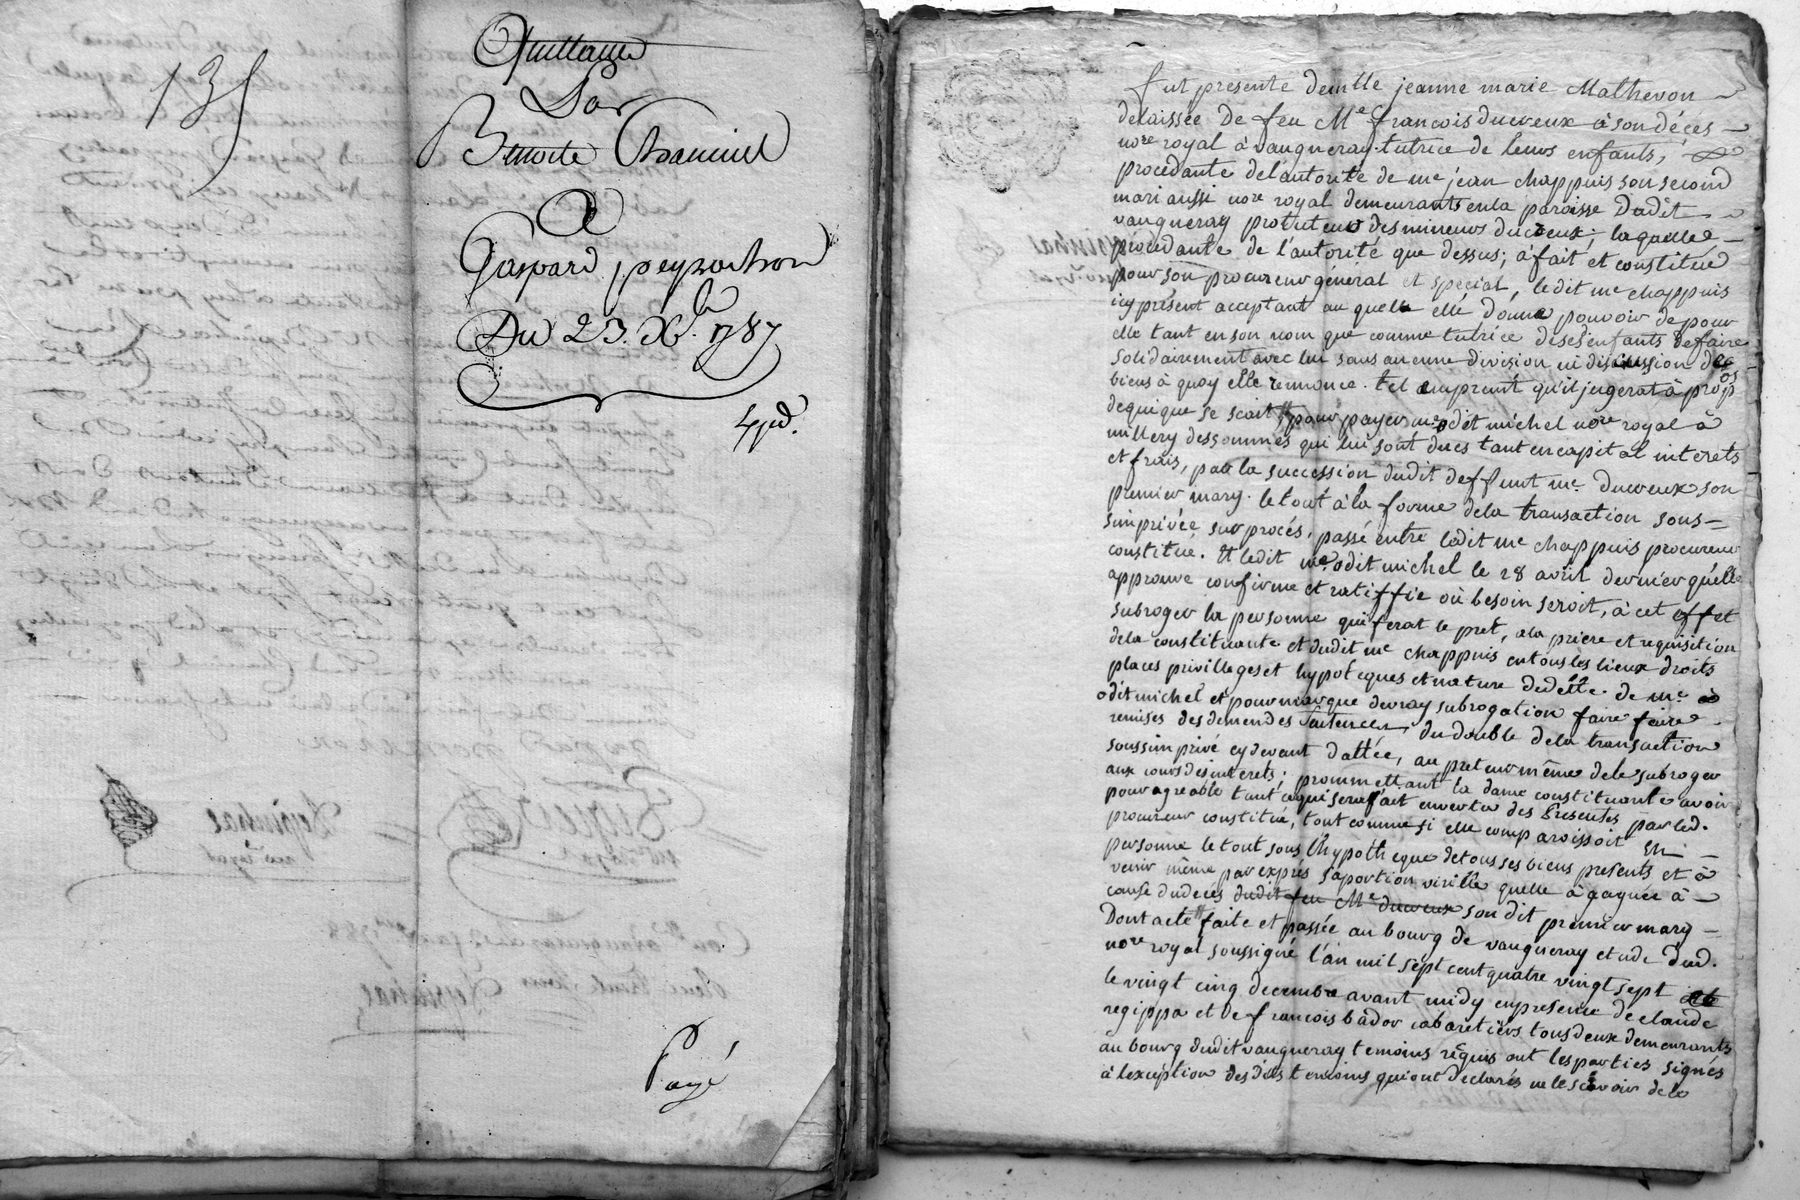 135
Quittance
Par
Benoite Thanniel
A
Gaspard peyrachon
Du 23. Xbr. 1787
Payé
fut presente demlle jeanne marie Mathevon
delaissée De feu Me francois ducreux à son décés
nore royal à vaugneray tutrice de leurs enfants,
procedante del'autorité de me jean chappuis son second
mari aussi nore royal demeurants enla paroisse Dudit
vaugneray protuteur des mineurs ducreux; laquelle
procedante de l'autorité que dessus; à fait et constitué
pour son procureur général et spécial, ledit me chappuis
icy présent acceptant auquel elle donne pouvoir de pour
elle tant en son nom que comme tutrice desesenfants defaire
solidairement avec lui sans aucune division ni discussion de
biens à quoy elle renonce. tel emprunt qu'il jugerat à propos
dequi que se soit, pour payer me odit michel nore royal à
millery dessommes qui lui sont dues tant en capital interets
et frais, par la succession dudit deffunt me. ducreux son
premier mary. le tout à la forme dela transaction sous
simprivée sur procés, passé entre ledit me chappuis procureur
constitué. Et ledit me. odit michel le 28 avril dernier qu'elle
approuve confirme et ratiffie où besoin seroit, à cet effet
subroger la personne qui ferat le pret, ala priere et requisition
dela constituante et dudit me chappuis entous les lieux droits
places privilleges et hypoteques et nature dedette de me
odit michel et pour marque de vray subrogation faire faire
remises des demendes sentences, du double dela transaction
soussimprivé cydevant dattée, au preteur même dele subroger
aux cours des interets; promettant la dame constituante avoir
pour agréable tout cequi serat fait en vertu des presentes par led.
procureur constitué, tout comme si elle comparoissoit En
personne le tout sous l'hypotheque detous ses biens presents et à
venir même par exprés saportion virille quelle à gagnée à
cause dudecés dudit feu Me ducreux son dit premier mary
Dont acte faite et passée au bourg de vaugneray etude dud.
nore royal soussigné l'an mil sept cent quatre vingt sept
le vingt cinq decembre avant midy en presence de claude
regippa et de francois bador cabaretiers tous deux demeurants
au bourg dudit vaugneray temoins requis ont les parties signés
à l'exception des dits temoins qui ont declarés ne le scavoir de ce